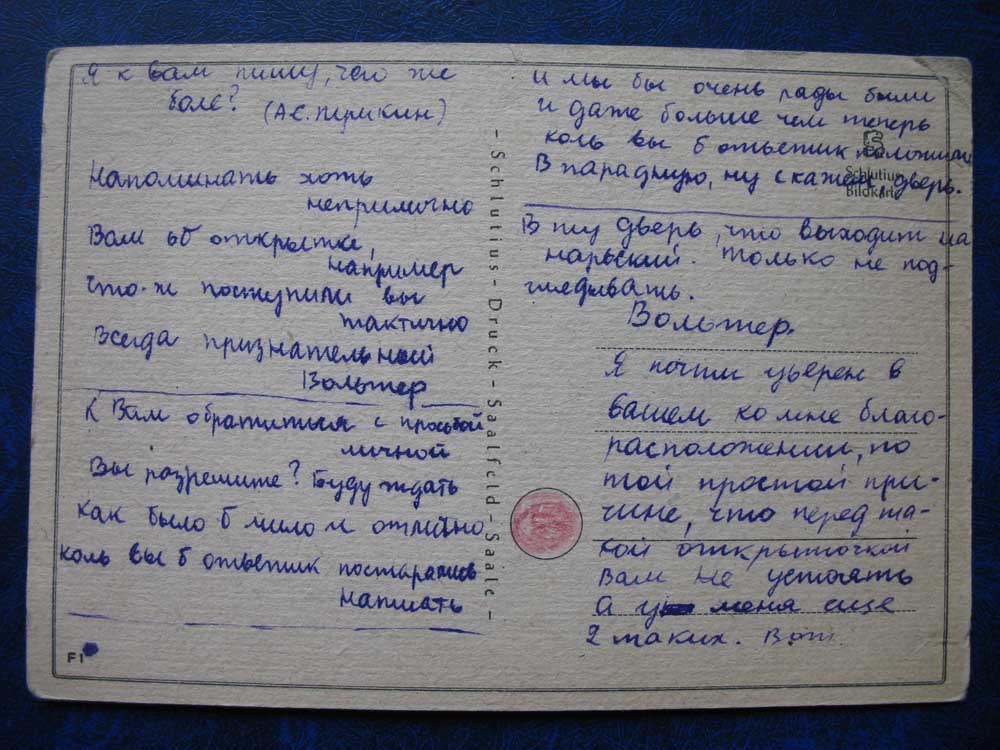 Я к вам пишу, чего же
боле?
(А.С. Пушкин)
Напоминать хоть
неприлично
Вам об открытке,
например
Что-ж поступили вы
тактично
Всегда признательный
Вольтер
К Вам обратиться с просьбой
личной
Вы разрешите? Буду ждать
Как было б мило и отлично
коль вы б ответик постарались
написать
и мы бы очень рады были
и даже больше чем теперь
коль вы б ответик положили
В парадную, ну скажем, дверь.
В ту дверь, что выходит на
нарвский. только не под-
глядывать.
Вольтер.
Я почти уверен в
вашем ко мне благо-
расположении, по
той простой при-
чине, что перед та-
кой открыточкой
Вам не устоять
А у меня еще
2 таких. Вот.
- Schlutius-Druck-Saalfeld-Saale -
Schlutius
Bildkarte
F1